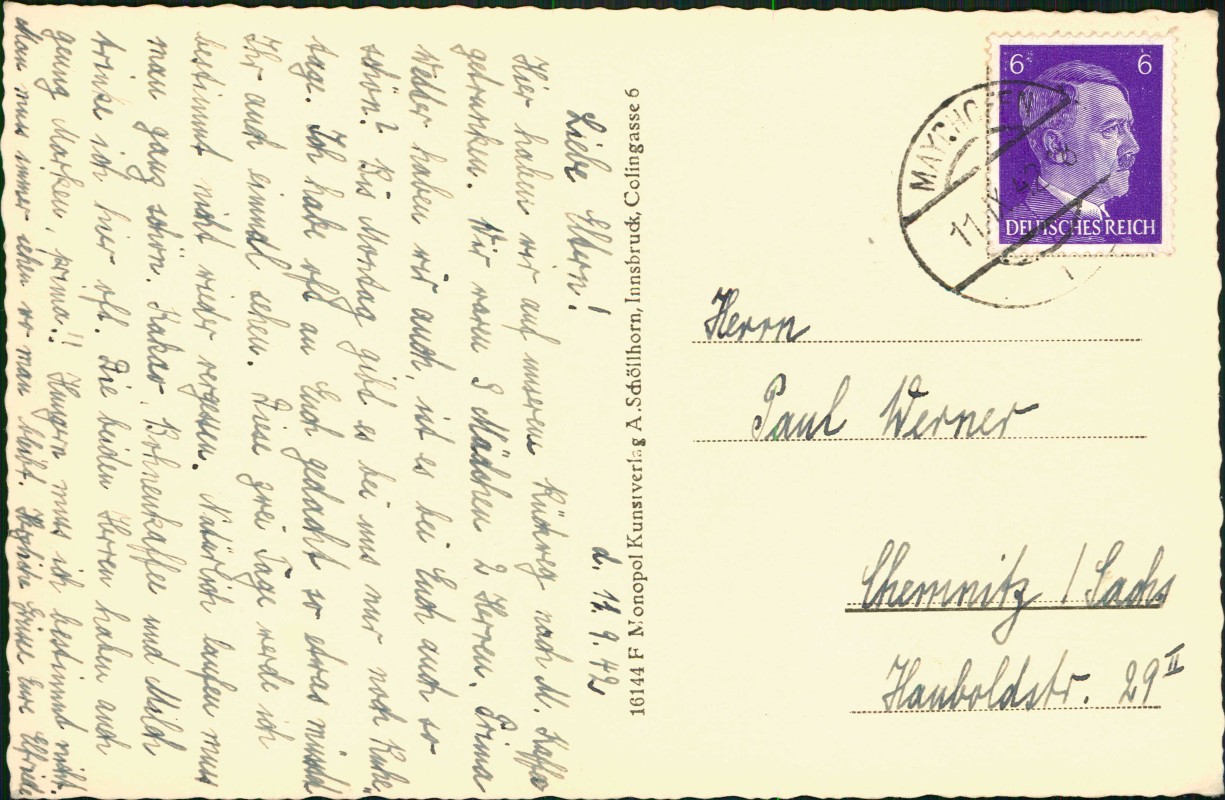 d. 11. 9. 42
Liebe Eltern!
Hier haben wir auf unserem Rückweg nach M. Kaffee
getrunken. Wir waren 3 Mädchen 2 Herren. Prima
Wetter haben wir auch, ist es bei Euch auch so
schön? Bis Montag gibt es bei uns nur noch Ruhe-
tage. Ich habe oft an Euch gedacht so etwas müsst
Ihr auch einmal sehen. Diese zwei Tage werde ich
bestimmt nicht wieder vergessen. Natürlich laufen muss
man ganz schön. Kakao, Bohnenkaffee und Milch
trinke ich hier oft. Die beiden Herren haben auch
genug Marken, prima!! Hungern muss ich bestimmt nicht.
Man muss immer sehen wo man bleibt. Herzliche Grüsse Eure Elfriede
16144 F Monopol Kunstverlag A. Schöllhorn, Innsbruck, Colingasse 6
6 6
DEUTSCHES REICH
MAYRHOFEN
11. IX. 42
Herrn
Paul Werner
Chemnitz / Sachs
Hauboldstr. 29 II